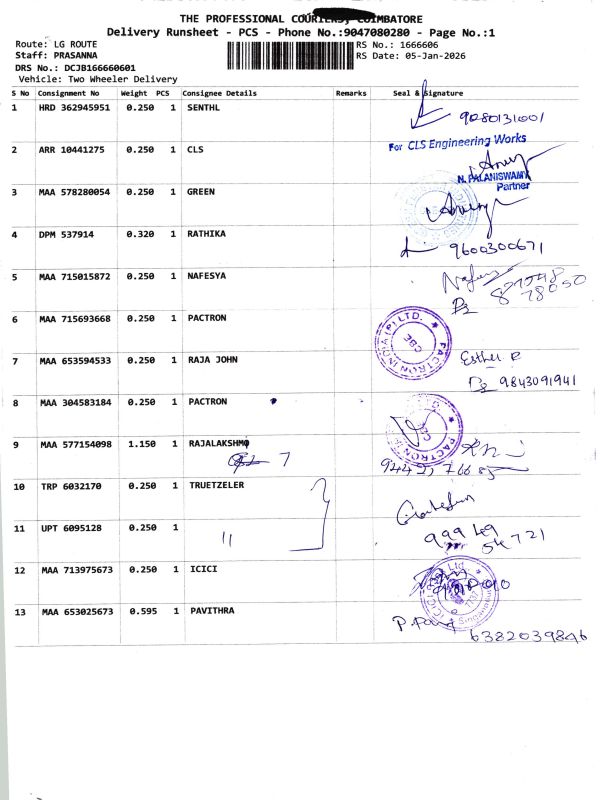 THE PROFESSIONAL COURIERS, COIMBATORE
Delivery Runsheet - PCS - Phone No.:9047080280 - Page No.:1
Route: LG ROUTE
Staff: PRASANNA
DRS No.: DCJB166660601
Vehicle: Two Wheeler Delivery
RS No.: 1666606
RS Date: 05-Jan-2026
S No Consignment No Weight PCS Consignee Details Remarks Seal & Signature
1 HRD 362945951 0.250 1 SENTHL
2 ARR 10441275 0.250 1 CLS
For CLS Engineering Works
N. PALANISWAMY
Partner
3 MAA 578280054 0.250 1 GREEN
4 DPM 537914 0.320 1 RATHIKA
9600300671
5 MAA 715015872 0.250 1 NAFESYA
6 MAA 715693668 0.250 1 PACTRON
PACTRON INDIA (P) LTD.
7 MAA 653594533 0.250 1 RAJA JOHN
Esther R
9843091941
8 MAA 304583184 0.250 1 PACTRON
9 MAA 577154098 1.150 1 RAJALAKSHMO
7
10 TRP 6032170 0.250 1 TRUETZELER
11 UPT 6095128 0.250 1
11
999 49
54721
12 MAA 713975673 0.250 1 ICICI
13 MAA 653025673 0.595 1 PAVITHRA
6382039846